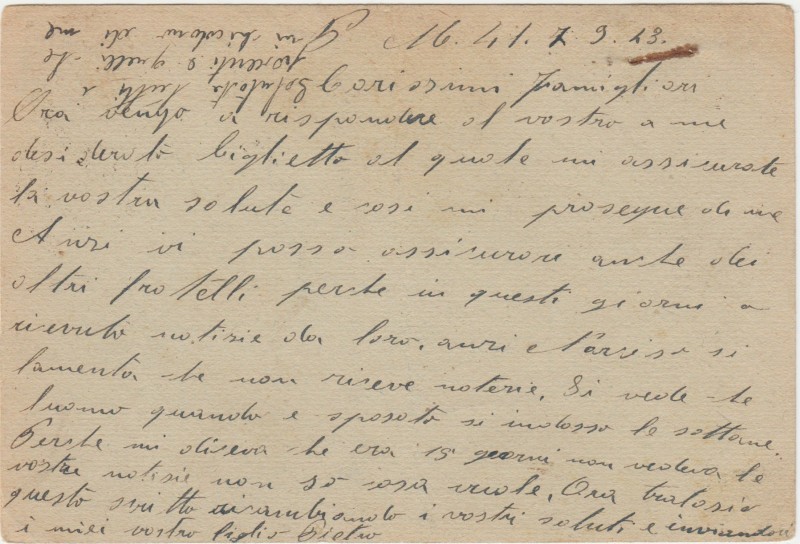 M. 41. 7 9 43.
Carissimi famigliari
Ora vengo a rispondere al vostro a me
desiderato biglietto al quale mi assicurate
la vostra salute e cosi mi prosegue di me
Anzi vi posso assicurare anche dei
altri fratelli perche in questi giorni a
ricevuto notizie da loro, anzi Narciso si
lamenta che non riceve noterie. Si vede che
luomo quando e sposato si indosso le sottane.
Perche mi diseva che era 15 giorni non vedeva le
vostre notisie non so cosa vuole. Ora tralascio
questo scritto ricambiando i vostri saluti e inviandovi
i miei vostro figlio Pietro
Salutate tutti i
parenti e quelli che
vi chiedono di me